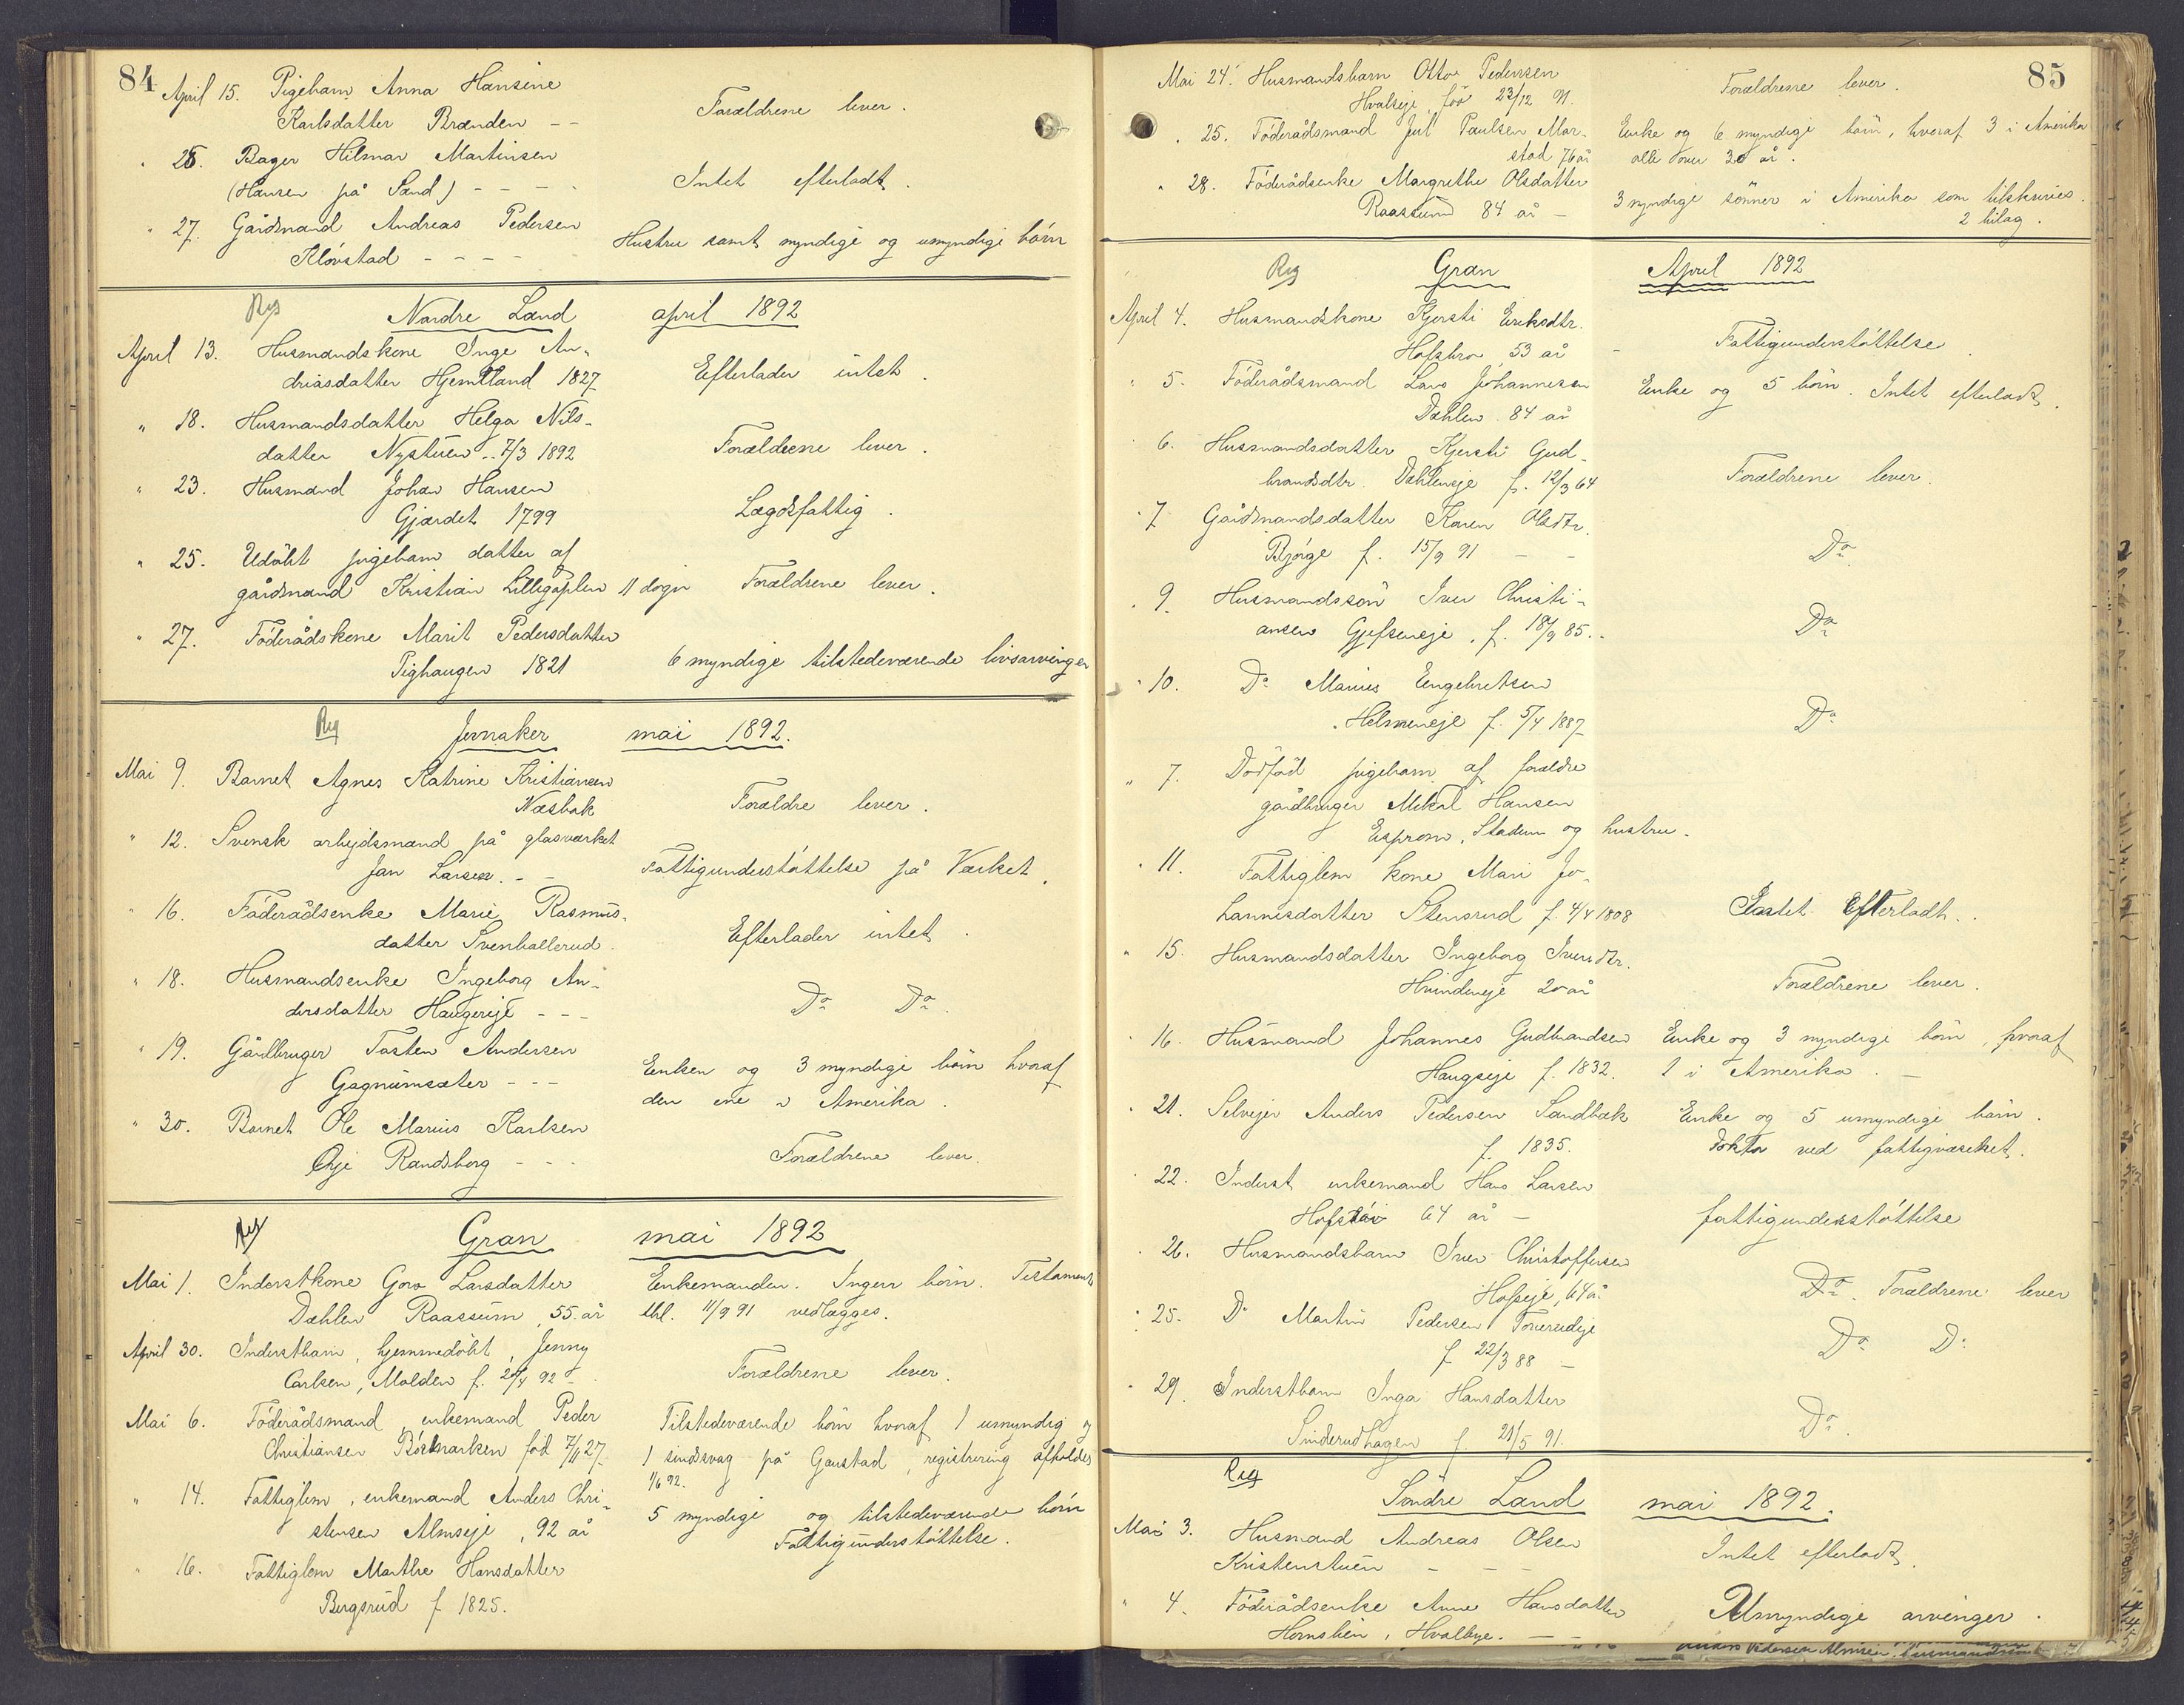 84
April 15. Pigebarn Anna Hansine
Karlsdatter Brænden - -
Forældrene lever.
" 25. Bager Hilmar Martinsen
(Hansen på Sand) - - - -
Intet efterladt.
" 27. Gårdmand Andreas Pedersen
Klövstad - - - -
Hustru samt myndige og umyndige börn
Reg Nordre Land april 1892
April 13. Husmandskone Inge An-
driasdatter Hjemtland 1827
Efterlader intet.
" 18. Husmandsdatter Helga Nils-
datter Nystuen .. 7/3 1892
Forældrene lever.
" 23. Husmand Johan Hansen
Gjærdet 1799
Lægdsfattig.
" 25. Udöbt pigebarn datter af
gårdmand Kristian Lillegaplen 11 dogn
Forældrene lever.
" 27. Föderådskone Marit Pedersdatter
Pighaugen 1821
6 myndige tilstedeværende livsarvinger
Reg Jevnaker mai 1892.
Mai 9. Barnet Agnes Katrine Kristiansen
Næsbak
Forældre lever.
" 12. Svensk arbejdsmand på glasværket
Jan Larsen. - -
Fattigunderstöttelse på Værket.
" 16. Föderådsenke Marie Rasmus-
datter Svenballerud.
Efterlader intet.
" 18. Husmandsenke Ingeborg An-
dersdatter Haugereje - - -
Do Do.
" 19. Gårdbruger Tosten Andersen
Gagnumsæter - - -
Enken og 3 myndige börn hvoraf
den ene i Amerika.
" 30. Barnet Ole Marius Karlsen
Øije Randsborg - - -
Forældrene lever.
Reg Gran mai 1892
Mai 1. Inderstkone Goro Larsdatter
Dæhlen Raassum, 55 år
Enkemanden. Ingen börn. Testament
thl. 11/9 91 vedlægges.
April 30. Inderstbarn, hjemmedöbt, Jenny
Carlsen, Molden f. 24/4 92 -
Forældrene lever.
Mai 6. Föderådsmand, enkemand Peder
Christiansen Börkmarken föd 7/11 27.
Tilstedeværende börn hvoraf 1 umyndig og
1 sindssvag på Gaustad, registrering afholdes
1/6 92.
" 14. Fattiglem, enkemand Anders Chri-
stensen Almseje, 92 år
5 myndige og tilstedeværende börn
Fattigunderstöttelse.
" 16. Fattiglem Marthe Hansdatter
Bergsrud f 1825.
85
Mai 24. Husmandsbarn Otto Pedersen
Hvalseje, föd 23/12 91.
Forældrene lever.
" 25. Föderådsmand Jul Paulsen Mor-
stad 76 år
Enke og 6 myndige börn, hvoraf 3 i Amerika
alle over 30 år.
" 28. Föderådsenke Margrethe Olsdatter
Raassum 84 år -
3 myndige sönner i Amerika som tilskrives.
2 bilag.
Reg Gran April 1892
April 4. Husmandskone Kjersti Eriksdtr.
Hofsbro 53 år -
Fattigunderstöttelse.
" 5. Föderådsmand Lars Johannesen
Dæhlen 84 år
Enke og 5 börn. Intet efterladt.
6. Husmandsdatter Kjersti Gud-
brandsdtr. Dæhleneje f. 12/3 64
Forældrene lever.
" 7 Gårdmandsdatter Karen Olsdtr.
Bjørge f. 15/9 91 - -
Do
" 9. Husmandssön Iver Christi-
ansen Gjefseneje, f. 18/9 85..
Do
" 10. Do Marius Engebretsen
Helmeneje f. 5/4 1887
Do
" 7. Dödföd pigebarn af forældre
gårdbruger Mikal Hansen
Esprom, Stadum og hustru.
" 11. Fattiglem kone Mari Jo-
hannisdatter Stensrud f. 4/4 1808
Intet Efterladt.
" 15. Husmandsdatter Ingeborg Iversdtr.
Hvindeneje 20 år
Forældrene lever.
" 16. Husmand Johannes Gudbrandsen
Haugseje f. 1832.
Enke og 3 myndige börn, hvoraf
1 i Amerika. -
" 21. Selvejer Anders Pedersen Sandbæk
f. 1835.
Enke og 5 umyndige börn.
Doktor ved fattigvæsenet.
22. Inderst enkemand Hans Larsen
Hofstöi 64 år -
fattigunderstöttelse
" 26. Husmandsbarn Iver Christoffersen
Hofseje, 64 år
Do. Forældrene lever
" 25. Do Martin Pedersen Toverudeje
f 22/3 88 -
Do Do
" 29. Inderstbarn Inga Hansdatter
Sinderudhagen f 21/5 91.
Do.
Reg Söndre Land mai 1892.
Mai 3. Husmand Andreas Olsen
Kristenstuen - - -
Intet efterladt.
" 4. Föderådsenke Anne Hansdatter
Hornslien, Hvalbye. - -
Umyndige arvinger.